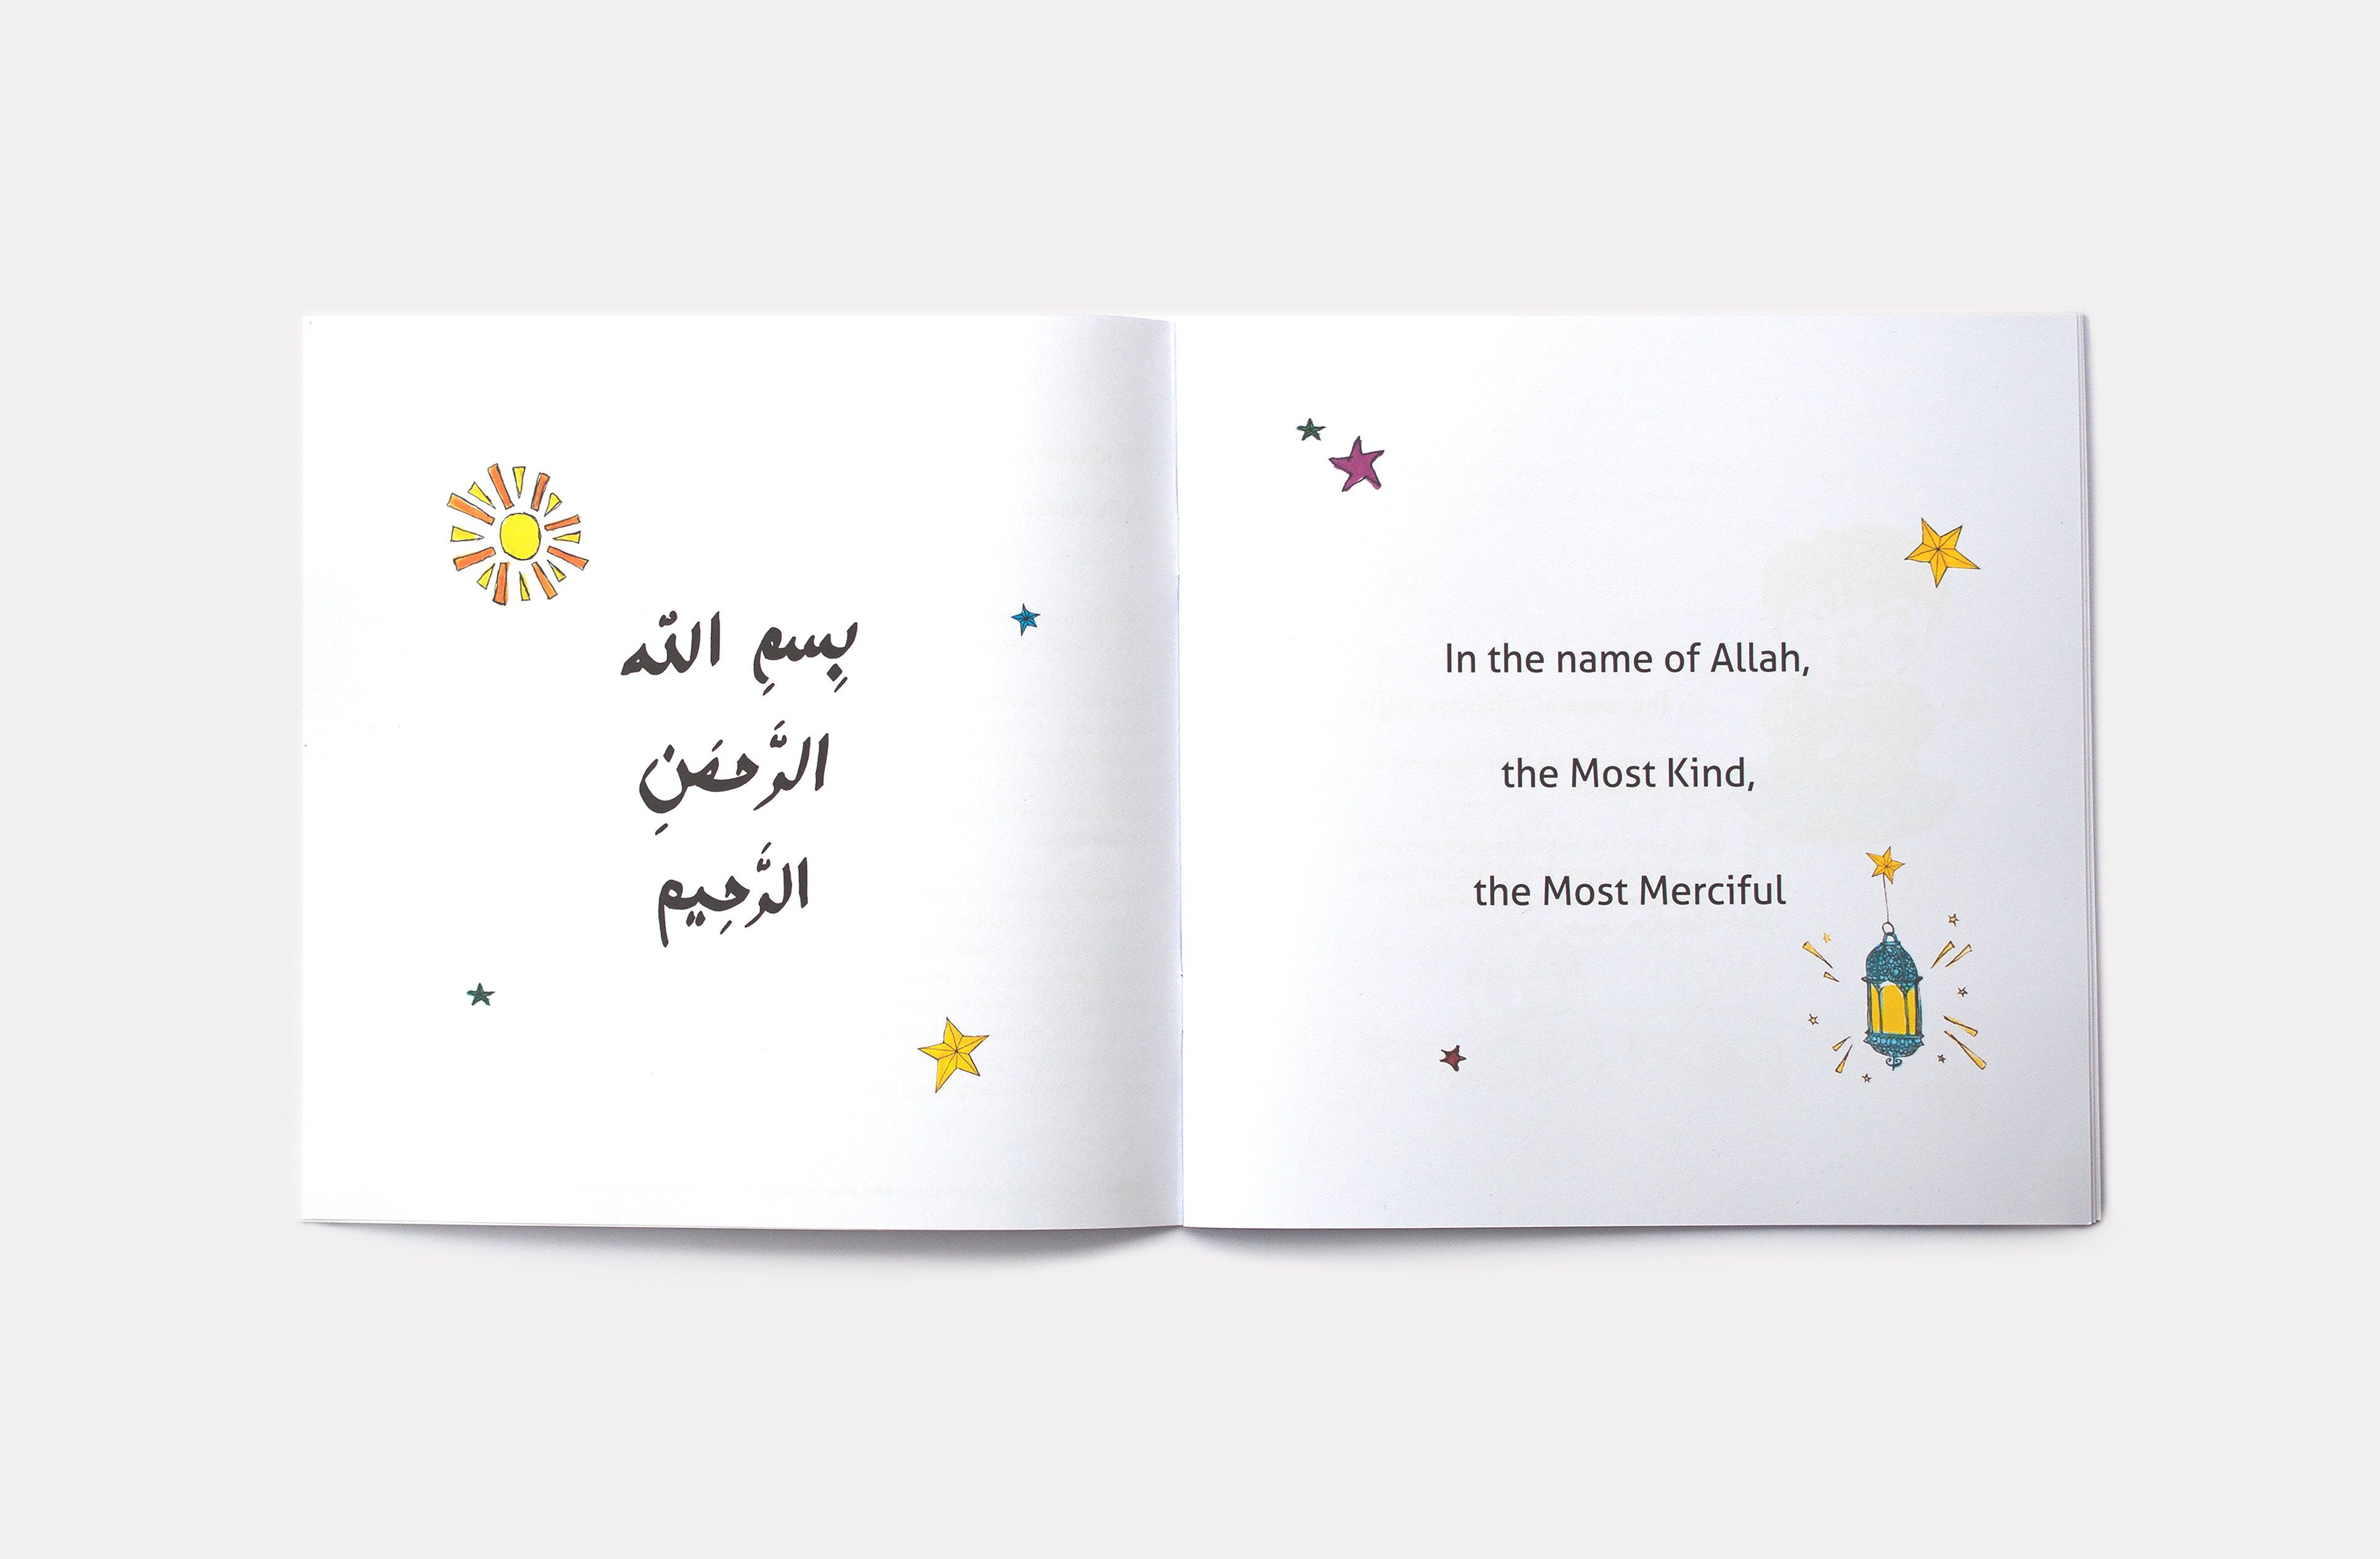 بِسمِ اللّه
الرَّحمَنِ
الرَّحِيم
In the name of Allah,
the Most Kind,
the Most Merciful